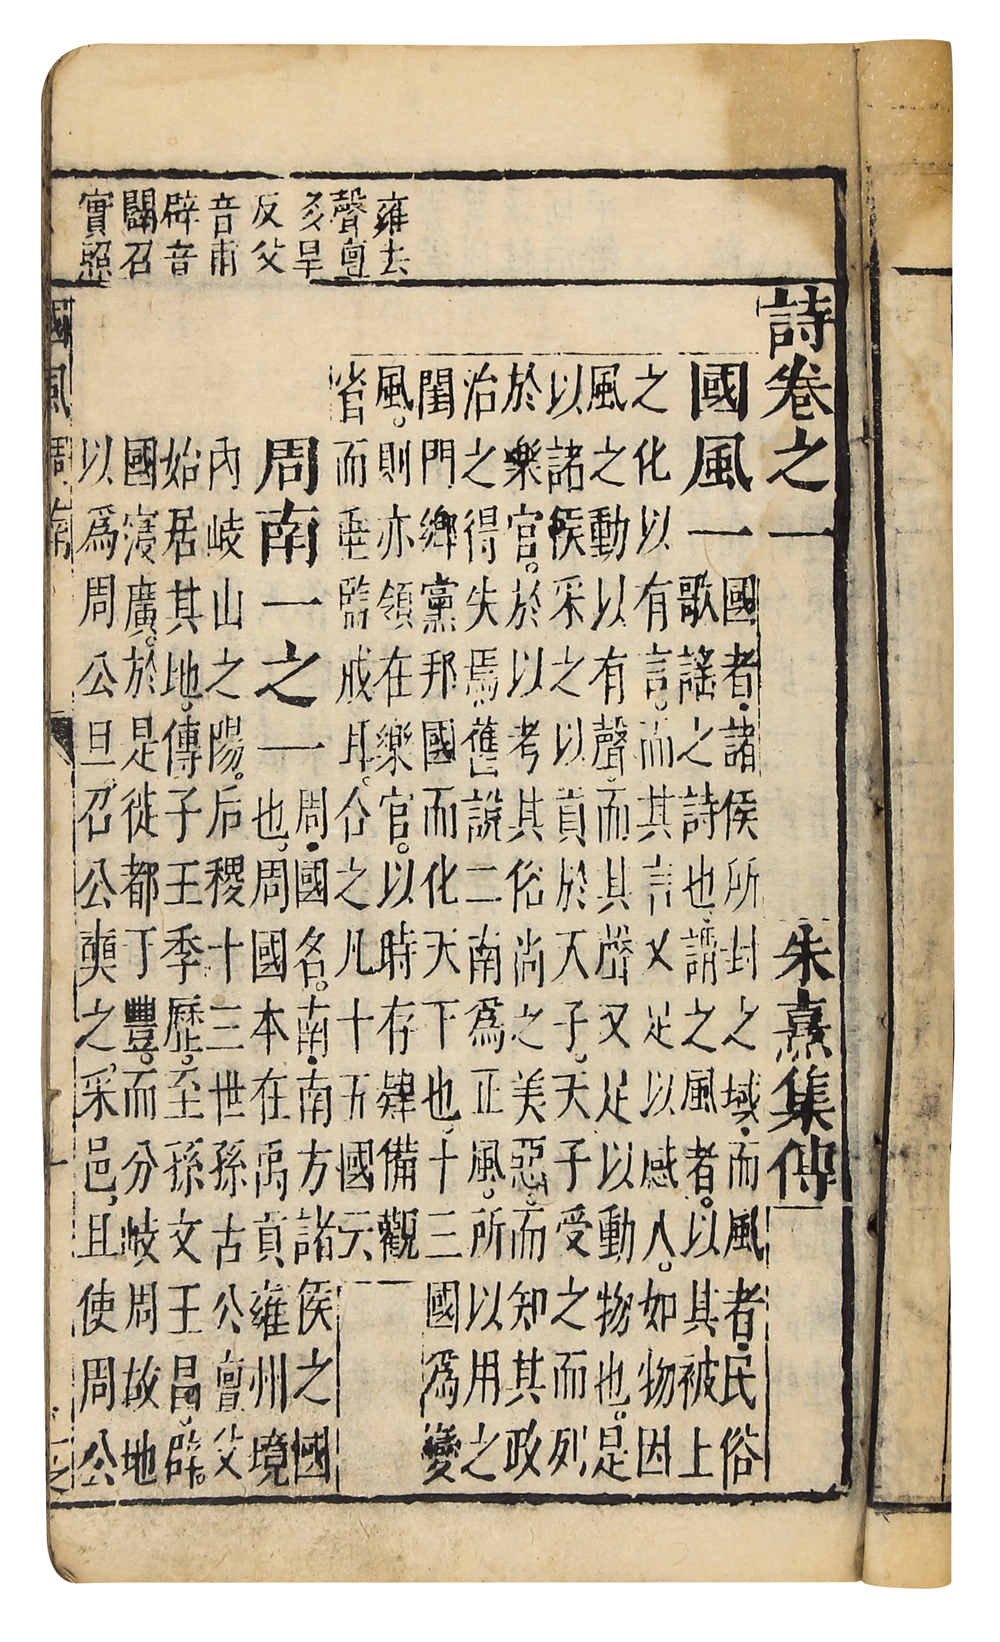 雍去
聲亶
多旱
反父
音甫
辟音
闢召
實照
詩卷之一　朱熹集傳
國風一
國者諸侯所封之域而風者民俗
歌謠之詩也謂之風者。以其被上
之化以有言。而其言又足以感人。如物因
風之動以有聲。而其聲又足以動物也。是
以諸侯采之以貢於天子。天子受之而列
於樂官。於以考其俗尚之美惡。而知其政
治之得失焉。舊說二南爲正風。所以用之
閨門鄉黨邦國而化天下也。十三國爲變
風。則亦領在樂官。以時存肄備觀
省而垂監戒耳。合之凡十五國云
周南一之一
周國名。南南方諸侯之國
也。周國本在禹貢雍州境
內岐山之陽。后稷十三世孫古公亶父
始居其地。傳子王季歷。至孫文王昌。辟
國寖廣。於是徙都于豐。而分岐周故地
以爲周公旦。召公奭之采邑。且使周公
國風　周南　一